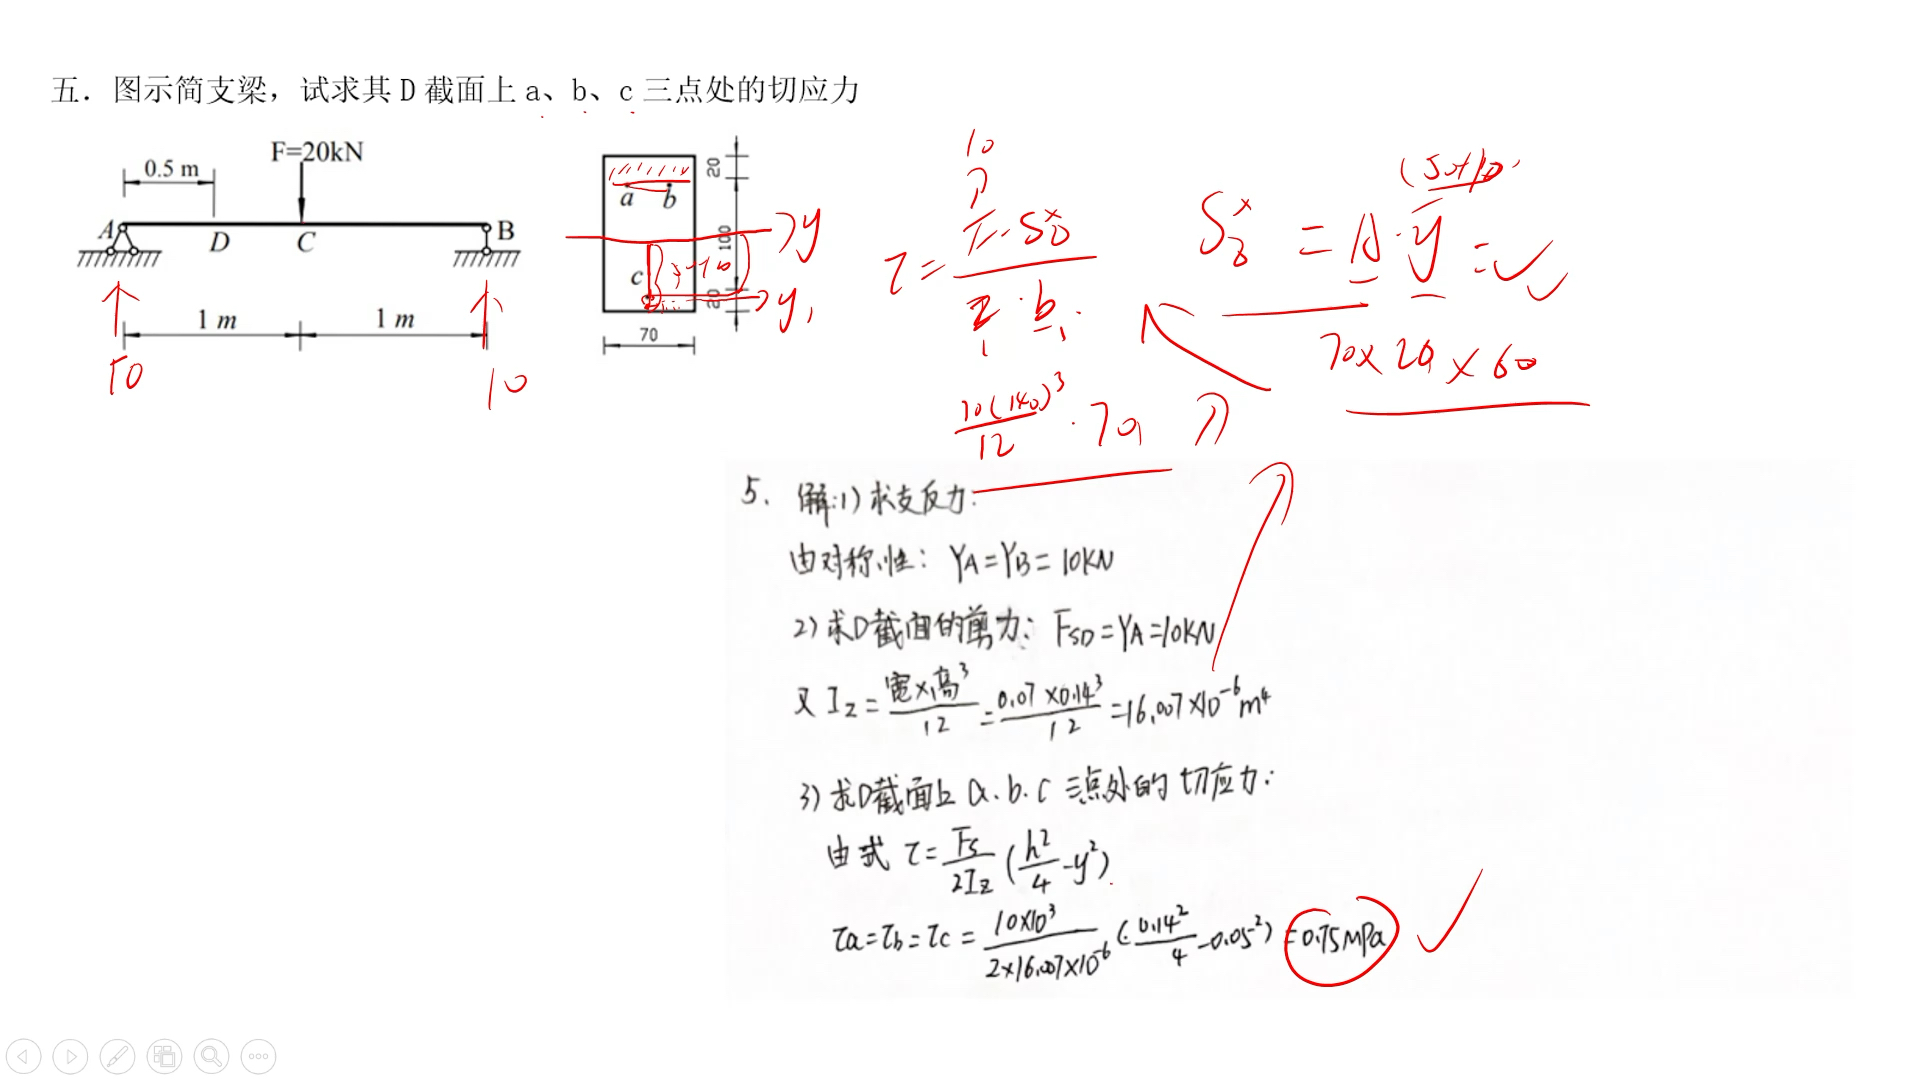 五. 图示简支梁，试求其 D 截面上 a、b、c 三点处的切应力
F=20kN
0.5 m
A D C B
1 m 1 m
10 10
20
a b
100
c 50+10
20
70
y
y₁
10
τ =
70(140)³/12 · 70
= A · y =
(50+10)
70×20×60
5. 解:1) 求支反力:
由对称性: YA=YB=10KN
2) 求D截面的剪力: FSD=YA=10KN
又 Iz = 宽×高³/12 = 0.07×0.14³/12 = 16.007×10⁻⁶m⁴
3) 求D截面上 a.b.c 三点处的切应力:
由式 τ= Fs/2Iz (h²/4 -y²)
τa=τb=τc = 10×10³/2×16.007×10⁻⁶ (0.14²/4 -0.05²) =0.75MPa